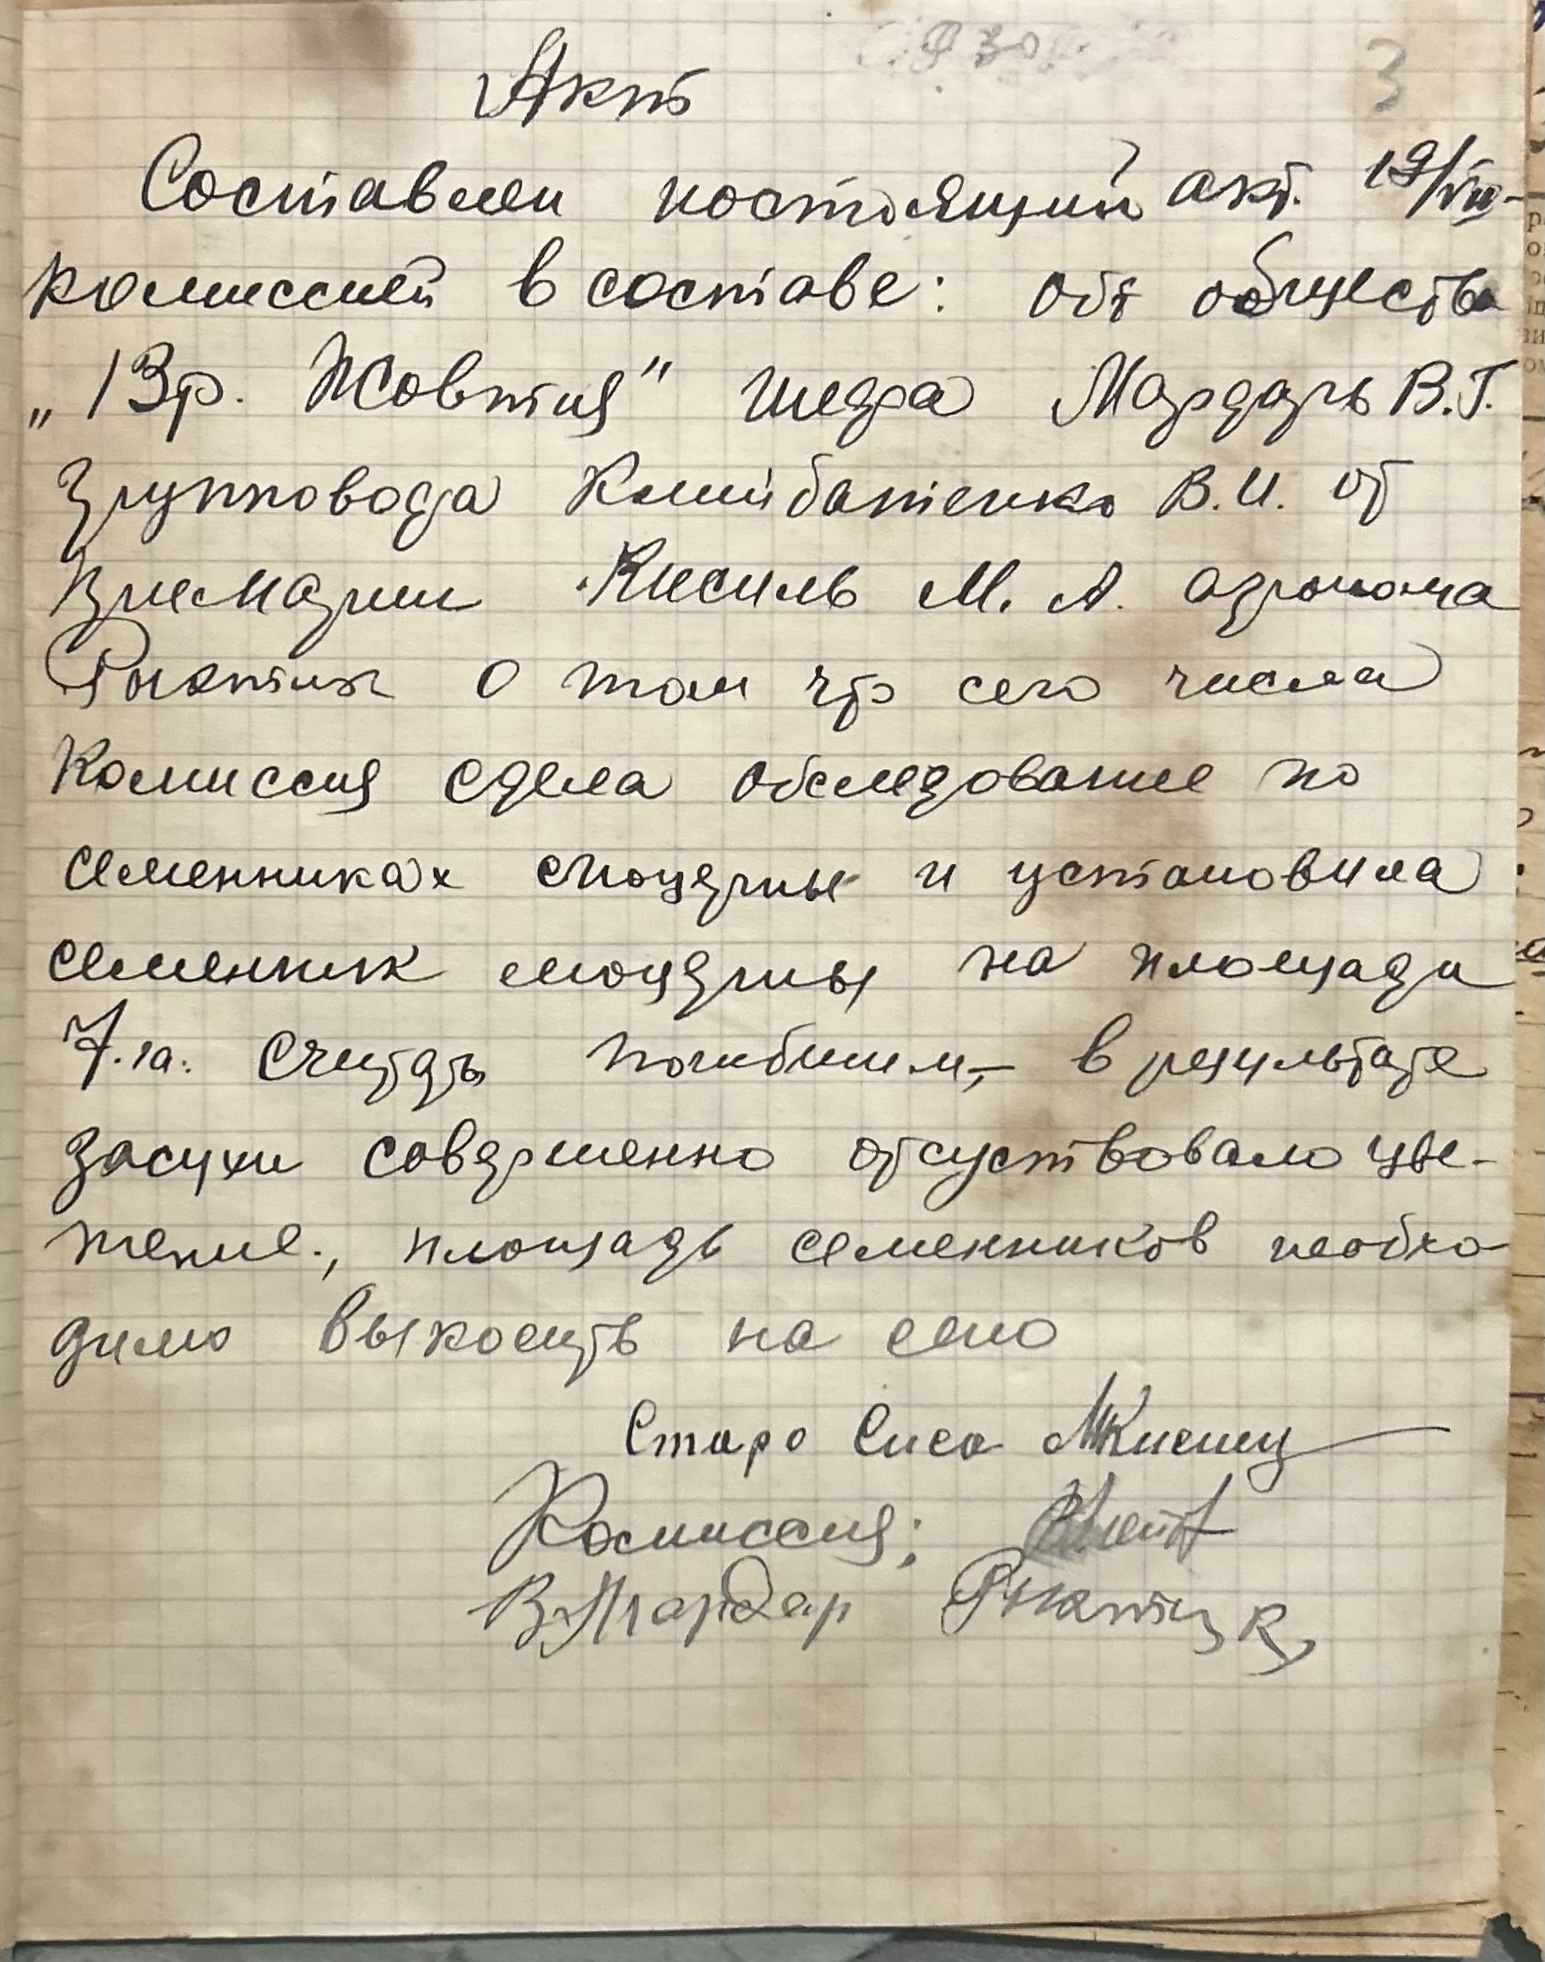 3
Акт
Составлен настоящий акт. 19/VII-
комиссией в составе: от общества
„13 р. Жовтня" шефа Мардарь В.Г.
груповода В.И. от
Кисиль М. А. агронома
о том что сего числа
Комиссия сдела обследование по
семенниках люцерны и установила
семенник люцерны на площади
7.га. считать погибшим,- в результате
засухи совершенно отсуствовало цве-
тение., площадь семенников необхо-
димо выкосить на сено
Комиссия:
В.Мардар